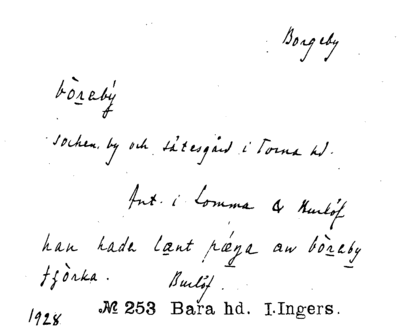 Borgeby
bòrabý
socken, by och sätesgård i Torna hd.
Ant. i Lomma & Burlöf
han hade lænt pǽŋa aw bòraby
fjörka. Burlöf.
1928 № 253 Bara hd. I. Ingers.